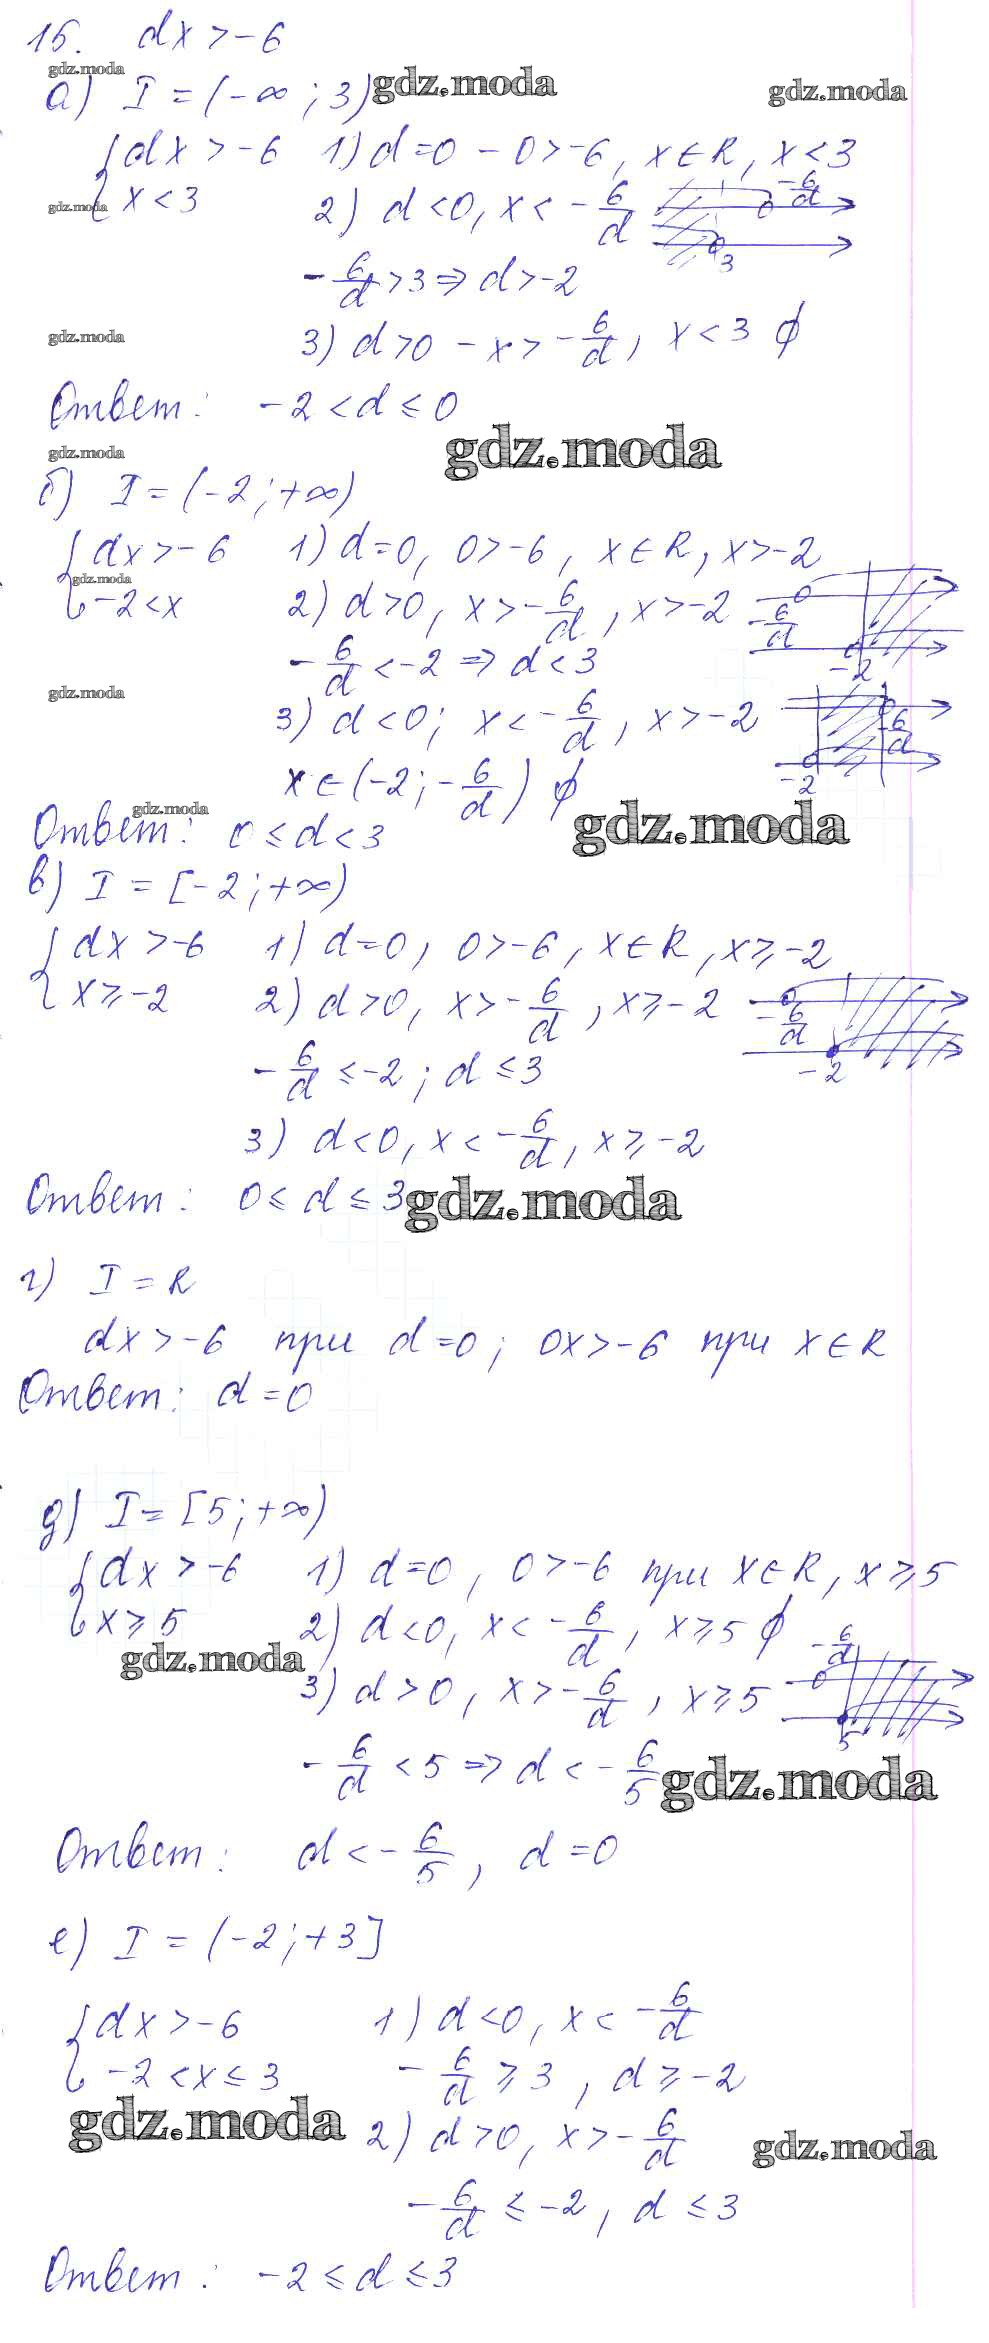 15. dx > -6
gdz.moda
а) I = (-∞; 3) gdz.moda gdz.moda
{ dx > -6 1) d=0 - 0 > -6, x∈R, x < 3
x < 3 2) d < 0, x < -6/d -6/d
gdz.moda 3
-6/d > 3 ⇒ d > -2
gdz.moda 3) d > 0 - x > -6/d, x < 3 ∅
Ответ: -2 < d ≤ 0
gdz.moda gdz.moda
б) I = (-2; +∞)
{ dx > -6 1) d=0, 0 > -6, x∈R, x > -2
gdz.moda
-2 < x 2) d > 0, x > -6/d, x > -2 -6/d -2
-6/d < -2 ⇒ d < 3
gdz.moda
3) d < 0; x < -6/d, x > -2 -6/d -2
x∈(-2; -6/d) ∅
gdz.moda gdz.moda
Ответ: 0 ≤ d < 3
в) I = [-2; +∞)
{ dx > -6 1) d=0, 0 > -6, x∈R, x ≥ -2
x ≥ -2 2) d > 0, x > -6/d, x ≥ -2 -6/d -2
-6/d ≤ -2; d ≤ 3
3) d < 0, x < -6/d, x ≥ -2
Ответ: 0 ≤ d ≤ 3 gdz.moda
г) I = R
dx > -6 при d=0; 0x > -6 при x∈R
Ответ: d=0
д) I = [5; +∞)
{ dx > -6 1) d=0, 0 > -6 при x∈R, x ≥ 5
x ≥ 5 2) d < 0, x < -6/d, x ≥ 5 ∅ -6/d
gdz.moda 3) d > 0, x > -6/d, x ≥ 5 5
-6/d < 5 ⇒ d < -6/5 gdz.moda
Ответ: d < -6/5, d=0
е) I = (-2; +3]
{ dx > -6 1) d < 0, x < -6/d
-2 < x ≤ 3 -6/d ≥ 3, d ≥ -2
gdz.moda 2) d > 0, x > -6/d gdz.moda
-6/d ≤ -2, d ≤ 3
Ответ: -2 ≤ d ≤ 3